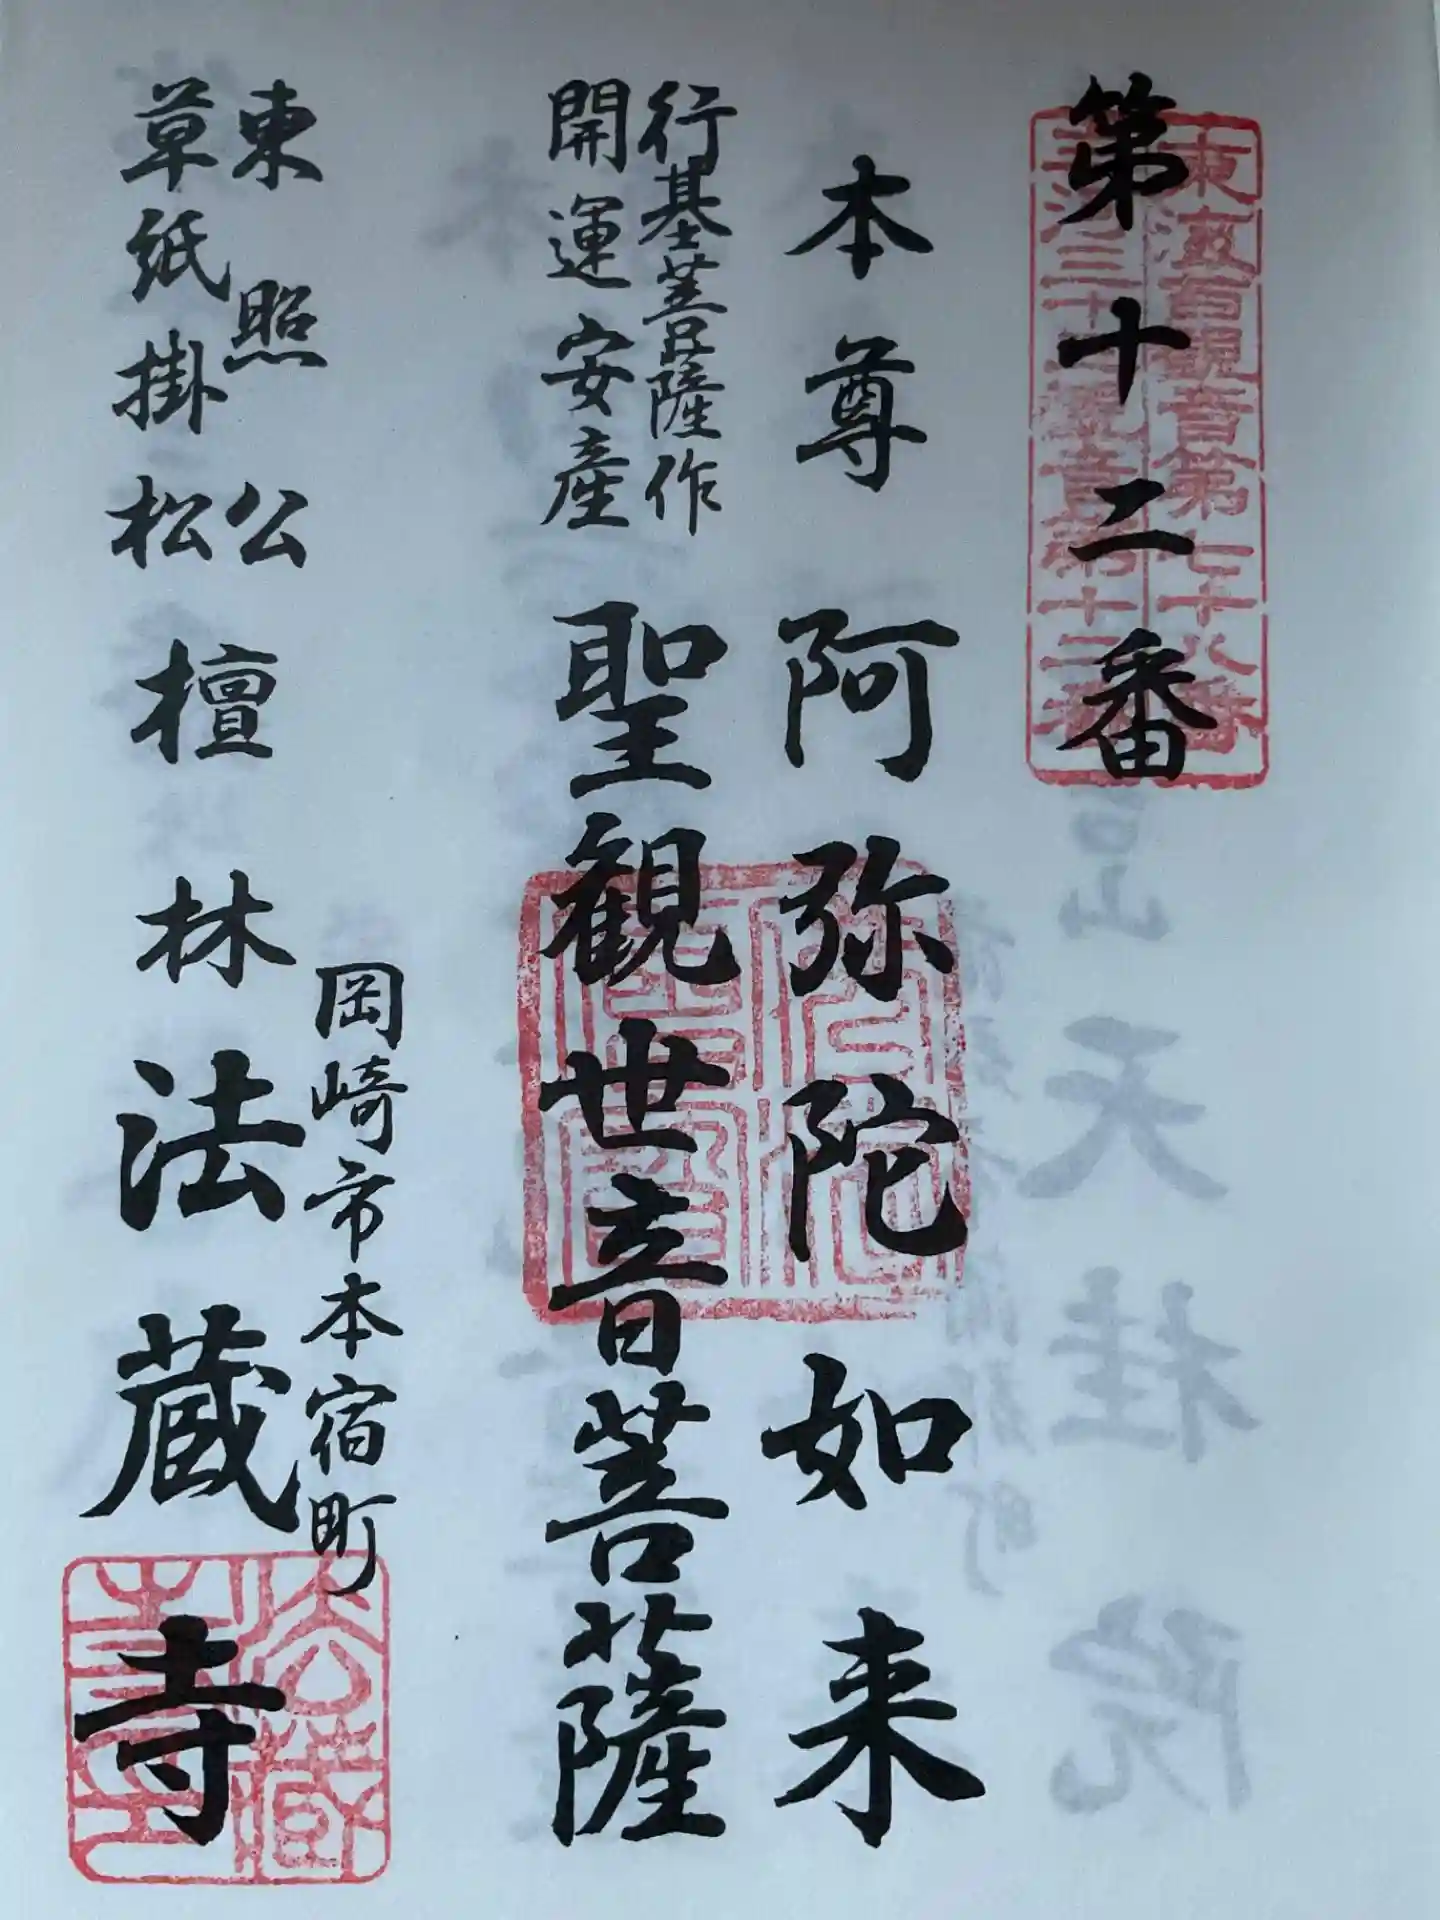 第十二番
東海百観音第七十八番
三河三十三観音第十二番
本尊 阿弥陀如来
行基菩薩作
開運安産
聖観世音菩薩
東照公
草紙掛松
檀林
岡崎市本宿町
法蔵寺